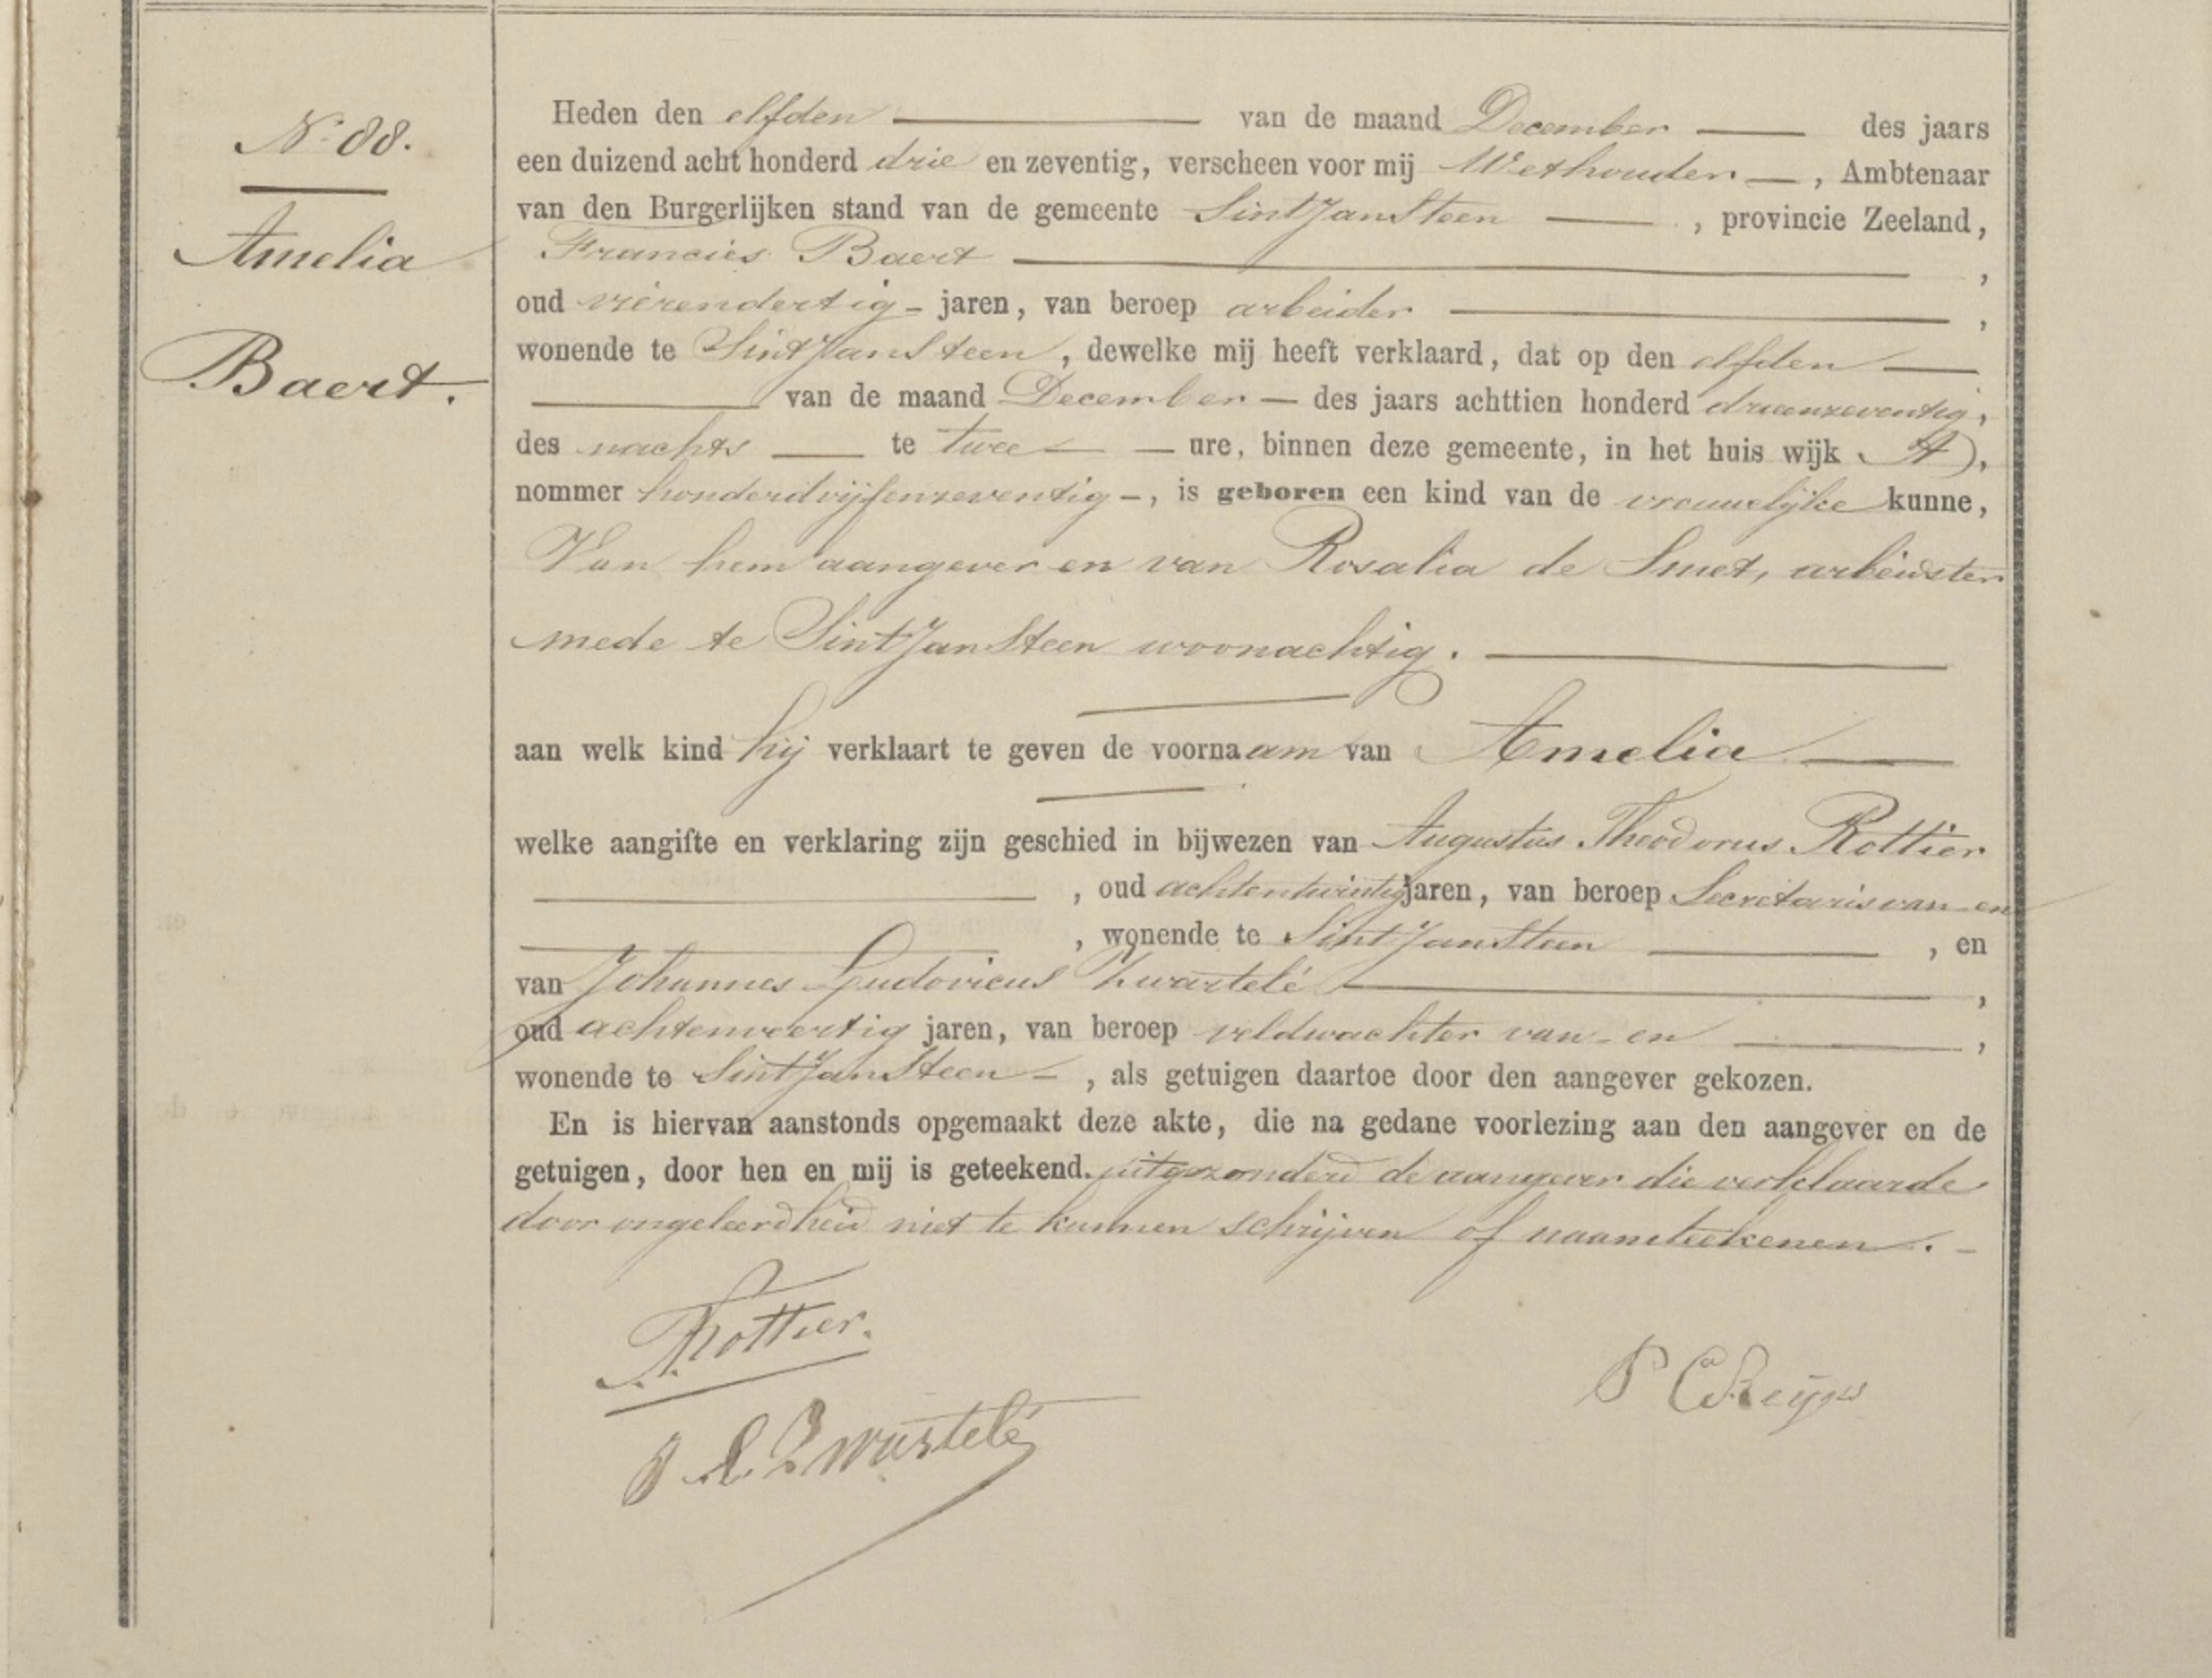 N° 88.
Amelia
Baert.
Heden den elfden van de maand December des jaars
een duizend acht honderd drie en zeventig, verscheen voor mij Wethouder, Ambtenaar
van den Burgerlijken stand van de gemeente Sint Jan Steen, provincie Zeeland,
Francies Baert,
oud vierendertig jaren, van beroep arbeider,
wonende te Sint Jan Steen, dewelke mij heeft verklaard, dat op den elfden
van de maand December des jaars achttien honderd drieenzeventig,
des nachts te twee ure, binnen deze gemeente, in het huis wijk A,
nommer honderdvijfenzeventig, is geboren een kind van de vrouwelijke kunne,
Van hem aangever en van Rosalia de Smet, arbeidster
mede te Sint Jan Steen woonachtig.
aan welk kind hij verklaart te geven de voornaam van Amelia
welke aangifte en verklaring zijn geschied in bijwezen van Augustus Theodorus Rottier
, oud achtentwintig jaren, van beroep Secretaris van en
, wonende te Sint Jan Steen, en
van Johannes Ludovicus Zwartelé,
oud achtenveertig jaren, van beroep veldwachter van en,
wonende te Sint Jan Steen, als getuigen daartoe door den aangever gekozen.
En is hiervan aanstonds opgemaakt deze akte, die na gedane voorlezing aan den aangever en de
getuigen, door hen en mij is geteekend. uitgezonderd de aangever die verklaarde
door ongeleerdheid niet te kunnen schrijven of naamteekenen.
Rottier.
J L Zwartelé